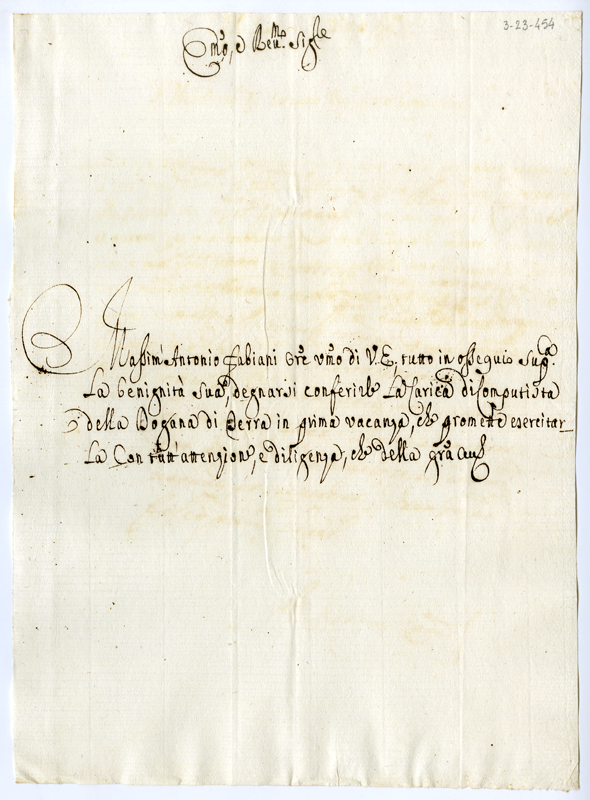 3-23-454
Em̃o, e Reu.mo Sig.re
Massim' Antonio Fabiani Or̃e um̃o di V. E., tutto in ossequio sup.ca
La benignità Sua, degnarsi conferirle La Carica di Computista
della Dogana di Terra in prima vacanza, che promette esercitar_
La Con tutt' attenzione, e diligenza, che della gr̃a